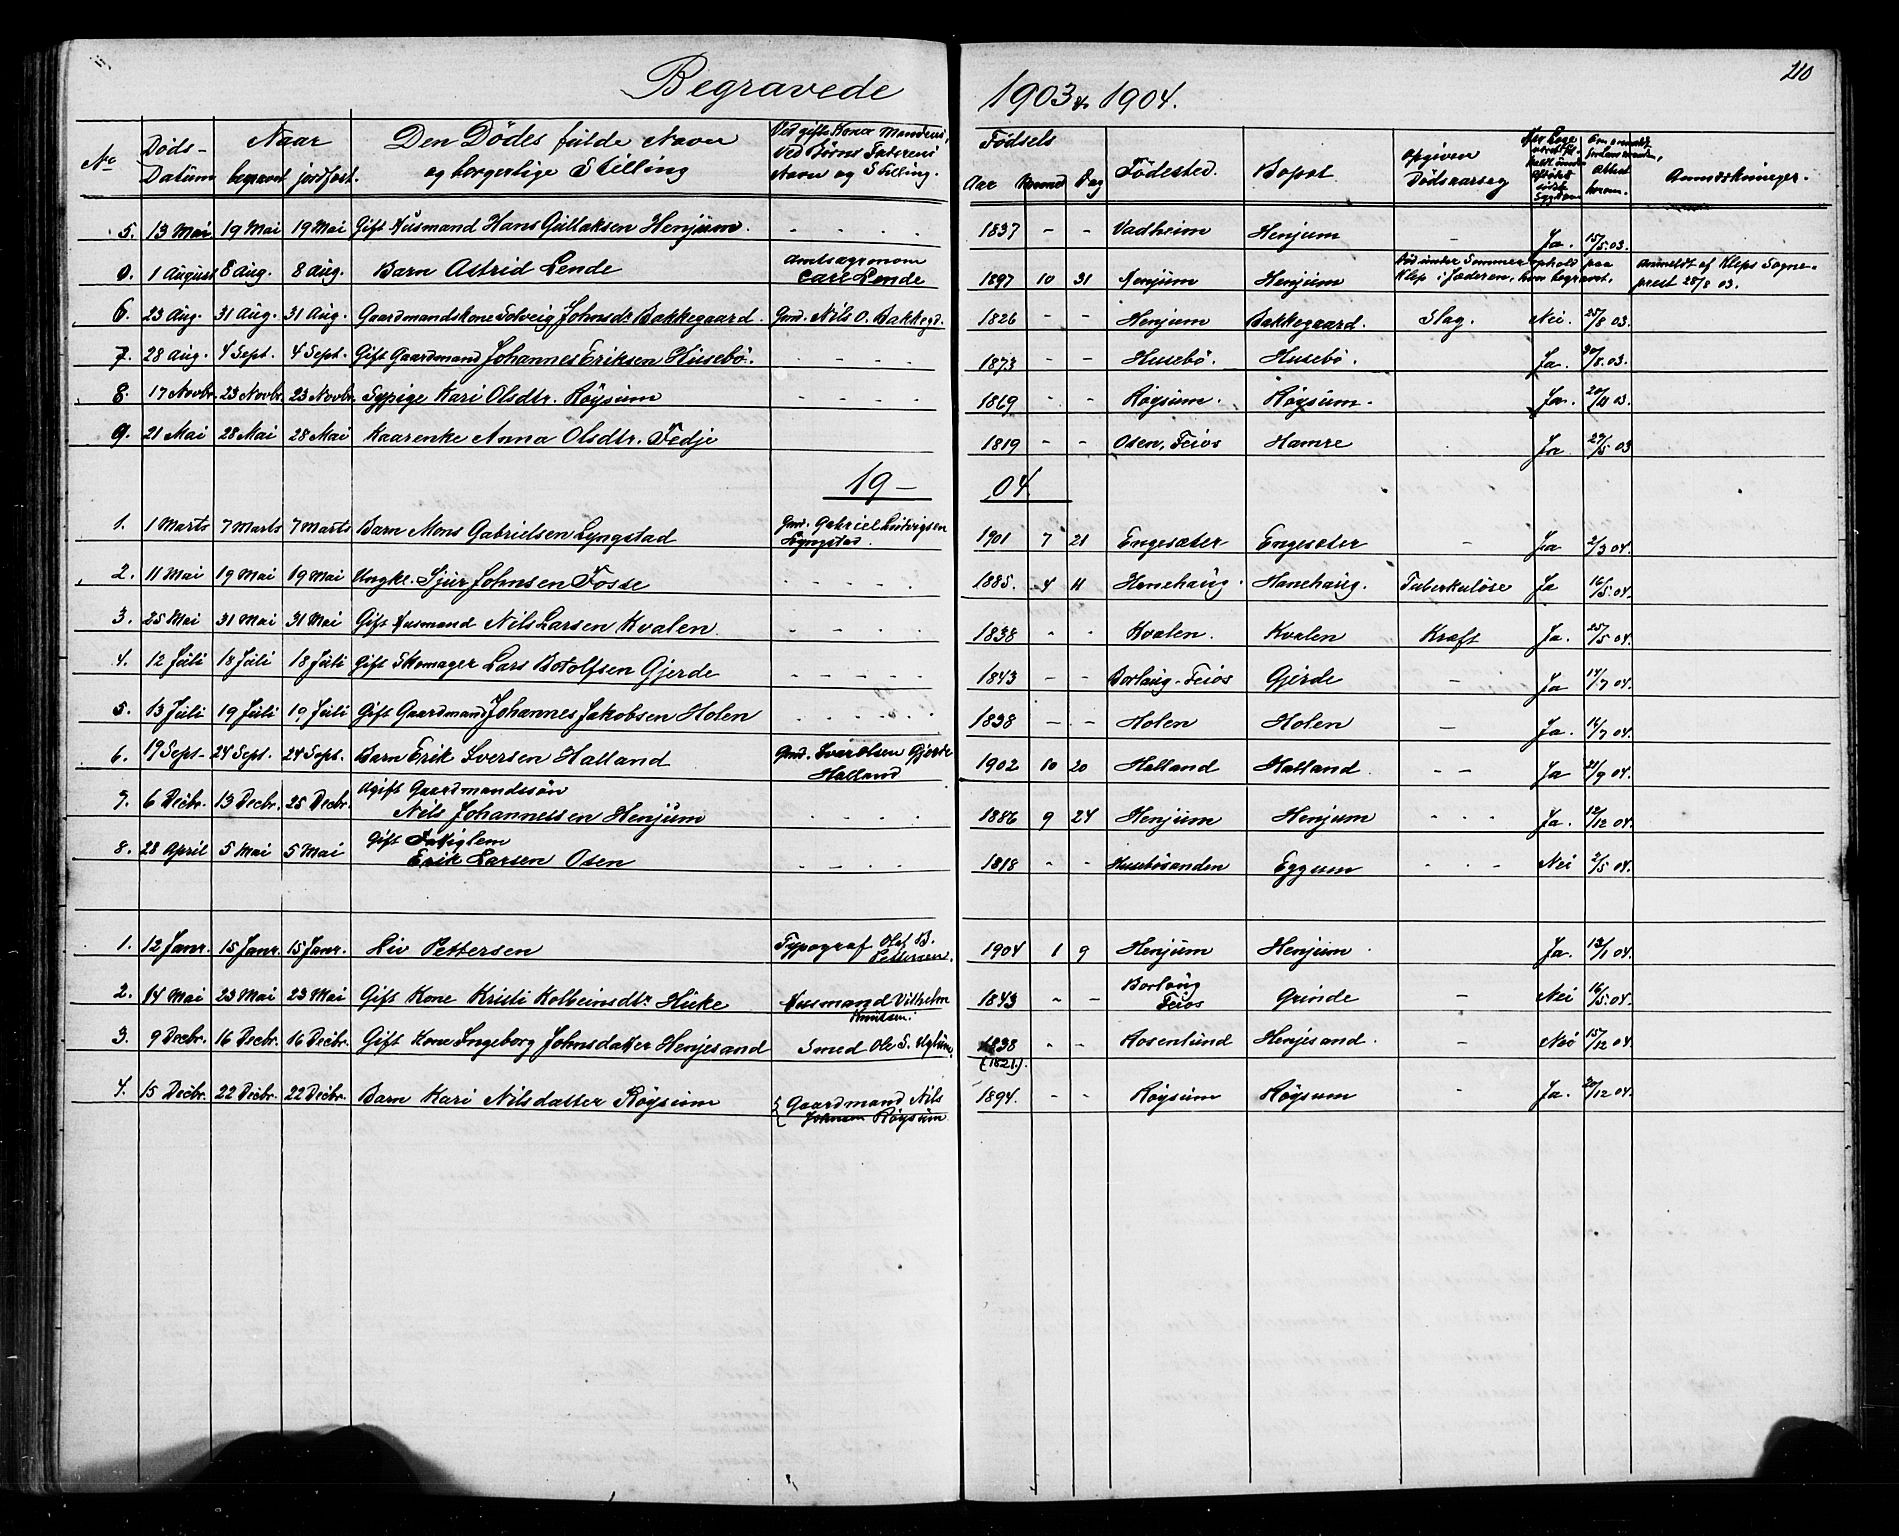 210
Begravede 1903 & 1904.
No Døds-Datum Naar begravet jordfæst. Den Dødes fulde Navn og borgerlige Stilling Ved gifte Koner Mandens, Ved Børns Faderens Navn og Stilling. Fødsels Aar Maaned Dag Fødested. Bopæl. Opgiven Dødsaarsag Anmærkninger.
5. 13 Mai 19 Mai 19 Mai Gift Husmand Hans Gullaksen Henjum. 1837 - - Vadheim Henjum - Ja. 15/5 03.
0. 1 August 8 Aug. 8 Aug. Barn Astrid Lende Amtsagronom Carl Lende 1897 10 31 Henjum Henjum Død under Sommerophold paa Klep i Jæderen, hvor begravet. Anmeldt af Kleps Sogneprest 28/8 03.
6. 23 Aug. 31 Aug. 31 Aug. Gaardmandskone Solveig Johnsdr. Bakkegaard. Gmd. Nils O. Bakkegd. 1826 - - Henjum Bakkegaard. Slag. Nei. 25/8 03.
7. 28 Aug. 4 Sept. 4 Sept. Gift Gaardmand Johannes Eriksen Husebö. 1873 - - Husebö. Husebö. Ja. 30/8. 03.
8. 17 Novbr. 23 Novbr. 23 Novbr. Sypige Kari Olsdtr. Röysum 1869 - - Röysum. Röysum. Ja. 20/11 03.
9. 21 Mai 28 Mai 28 Mai Kaarenke Anna Olsdtr. Fedje 1819 - - Osen, Feios Hamre Ja 29/5 03
19 - 04
1. 1 Marts 7 Marts 7 Marts Barn Mons Gabrielsen Lyngstad Gmd. Gabriel Ludvigsen Lyngstad. 1901 7 21 Engesæter Engesæter - Ja 2/3 04.
2. 11 Mai 19 Mai 19 Mai Ungk. Sjur Johnsen Fosse 1885. 4 11 Hanehaug. Hanehaug. Tuberkulöse Ja 16/5. 04.
3. 25 Mai 31 Mai 31 Mai Gift Husmand Nils Larsen Kvalen. 1838 - - Kvalen. Kvalen Kræft Ja. 25/5 04.
4. 12 Juli 18 Juli 18 Juli Gift Skomager Lars Botolfsen Gjerde 1843 - - Borlaug - Feios Gjerde - Ja 14/7 04.
5. 13 Juli 19 Juli 19 Juli Gift Gaardmand Johannes Jakobsen Holen 1838 - - Holen Holen - Ja. 14/7 04.
6. 19 Sept. 24 Sept. 24 Sept. Barn Erik Iversen Halland Gmd. Ivar Olsen Gjerde Halland 1902 10 20 Halland Halland - - Ja 21/9 04.
7. 6 Decbr. 13 Decbr. 25 Decbr. Ugift Gaardmandssön Nils Johannessen Henjum 1886 9 24 Henjum Henjum Ja. 12/12 04.
8. 28 April 5 Mai 5 Mai Gift Fattiglem Erik Larsen Osen 1818 - - Husebösanden Eggum Nei 2/5 04.
1. 12 Janr. 15 Janr. 15 Janr. Liv Pettersen Typograf Olaf B. Pettersen. 1904 1 9 Henjum Henjum Ja. 13/1 04.
2. 14 Mai 23 Mai 23 Mai Gift Kone Kristi Kolbeinsdtr. Huke Husmand Vilhelm Knutsen. 1843 - - Borlaug Feios Grinde - Nei 16/5 04.
3. 9 Decbr. 16 Decbr. 16 Decbr. Gift Kone Ingeborg Johnsdatter Henjesand Smed Ole S. 1838 (1821.). - - Rosenlund Henjesand. - Nei 15/12 04.
4. 15 Decbr. 22 Decbr. 22 Decbr. Barn Kari Nilsdatter Röysum Gaardmand Nils Johnsen Röysum 1894. - - Röysum Röysum - Ja. 20/12 04.